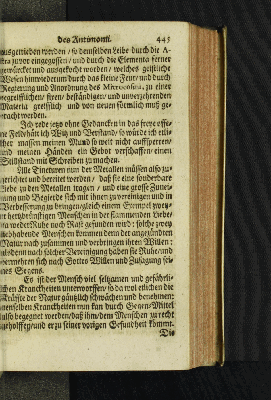 des Antimonii. 445
ausgenieden worden / so demselben Leibe durch die A-
stra zuvor eingegossen / und durch die Elementa ferner
gewürcket und ausgekocht worden / welches geistliche
Wesen hinwiederum durch das kleine Feur / und durch
Regierung und Anordnung des Microcosmi, zu einer
begreifflichen / fixen / beständigen / und unverzehrenden
Materia greifflich und von neuen förmlich muß ge-
bracht werden.
Ich rede jetzo ohne Gedancken in das freye offe-
ne Feld / hätt ich Witz und Verstand / so würde ich etli-
cher massen meinen Mund so weit nicht auffsperren /
und meinen Händen ein Gebot verschaffen / einen
Stillstand mit Schreiben zu machen.
Alle Tincturen nun der Metallen müssen also zu-
gerichtet und bereitet werden / daß sie eine sonderbare
Liebe zu den Metallen tragen / und eine grosse Zunei-
gung und Begierde sich mit ihnen zu vereinigen und in
Verbesserung zu bringen / gleich einem
zwey Menschen in der flammenden Liebe
weder Ruhe noch Rast gefunden wird: solche zwey
liebhabende Menschen kommen denn der angezündten
Natur nach zusammen und verbringen ihren Willen:
alsdenn nach solcher Vereinigung haben sie Ruhe / und
vermehren sich nach Gottes Willen und Zusagung sei-
nes Segens.
Es ist der Mensch viel seltzamen und gefährli-
chen Kranckheiten unterworffen / so da wol etlichen die
Kräffte der Natur gäntzlich schwächen und benehmen:
denselben Kranckheiten nun kan durch Gegen-Mittel
also begegnet werden / daß ihm / dem Menschen zu recht
geholffen / und er zu seiner vorigen Gesundheit kömmt.
Die